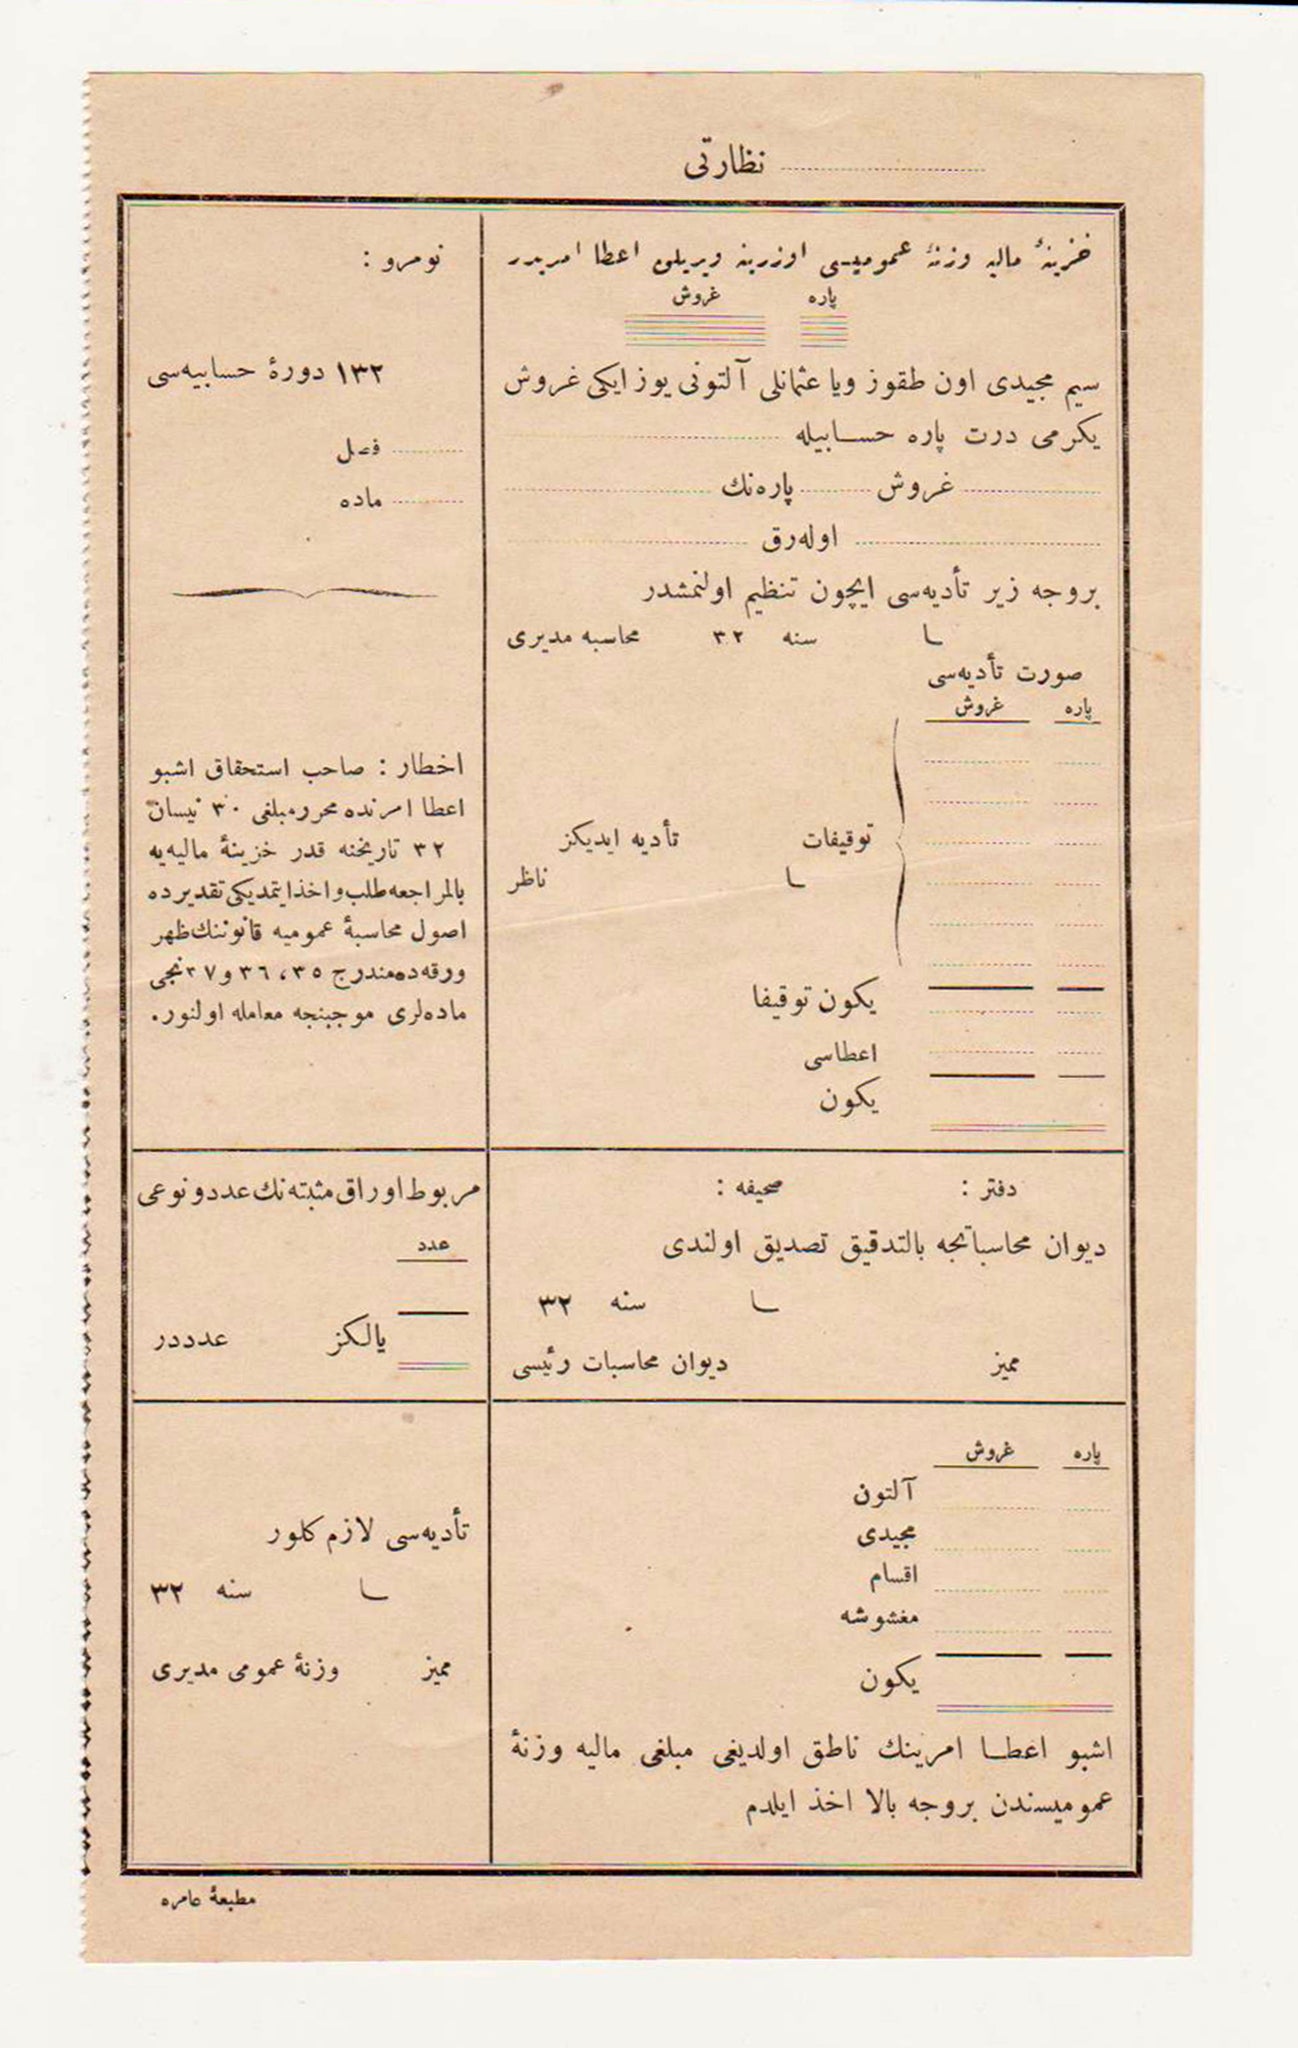 نظارتی
خزینهٔ مالیه وزنهٔ عمومیسی اوزرینه ویریلن اعطا امریدر
پاره غروش
سیم مجیدی اون طقوز ویا عثمانلی آلتونی یوز ایکی غروش
یکرمی درت پاره حسابیله
غروش پاره‌نك
اوله‌رق
بروجه زیر تأدیه‌سی ایچون تنظیم اولنمشدر
سنه ٣٢ محاسبه مدیری
صورت تأدیه‌سی
پاره غروش
توقیفات تأدیه ایدیکز
ناظر
یکون توقیفا
اعطاسی
یکون
نومرو :
١٣٢ دورهٔ حسابیه‌سی
فصل
ماده
اخطار : صاحب استحقاق اشبو
اعطا امرنده محرر مبلغی ٣٠ نیسان
٣٢ تاریخنه قدر خزینهٔ مالیه‌یه
بالمراجعه طلب و اخذ ایتمدیکی تقدیرده
اصول محاسبهٔ عمومیه قانوننك ظهر
ورقه‌ده مندرج ٣٥ ، ٣٦ و ٣٧ نجی
ماده‌لری موجبنجه معامله اولنور.
دفتر : صحیفه :
دیوان محاسباتجه بالتدقیق تصدیق اولندی
سنه ٣٢
ممیز دیوان محاسبات رئیسی
مربوط اوراق مثبته‌نك عدد و نوعی
عدد
یالکز عدددر
پاره غروش
آلتون
مجیدی
اقسام
مغشوشه
یکون
اشبو اعطا امرینك ناطق اولدیغی مبلغی مالیه وزنهٔ
عمومیسندن بروجه بالا اخذ ایلدم
تأدیه‌سی لازم کلور
سنه ٣٢
ممیز وزنهٔ عمومی مدیری
مطبعهٔ عامره